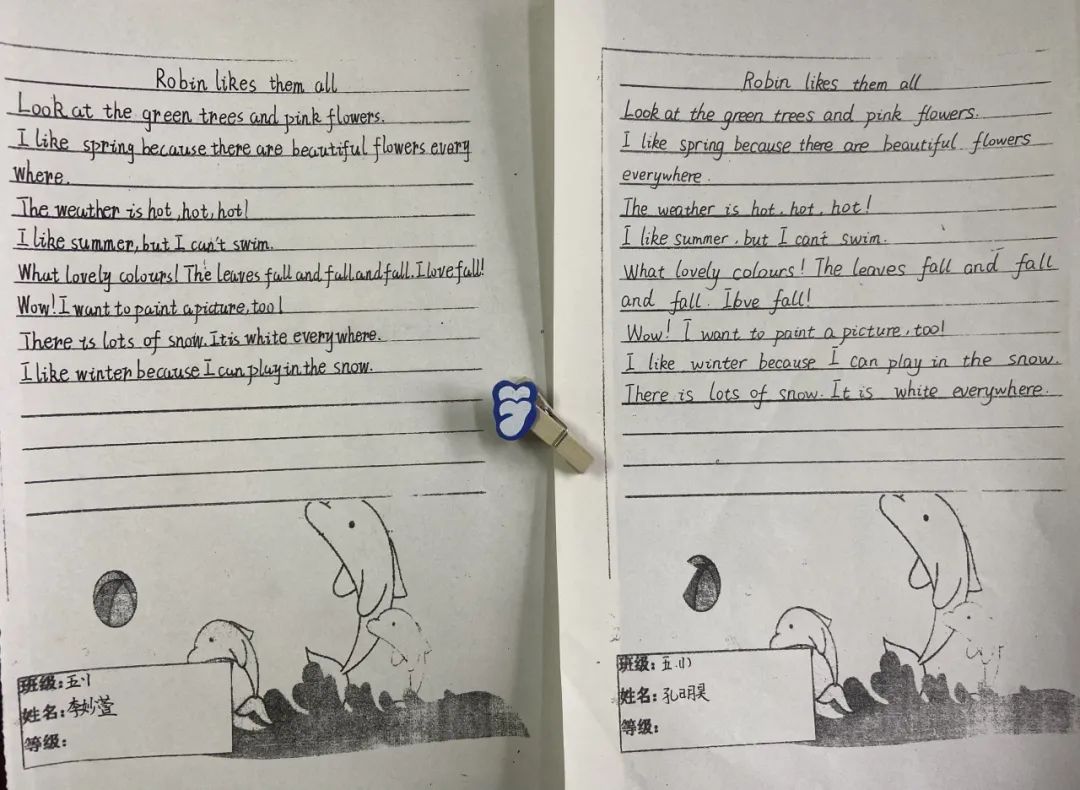 Robin likes them all
Look at the green trees and pink flowers.
I like spring because there are beautiful flowers every
where.
The weather is hot, hot, hot!
I like summer, but I can't swim.
What lovely colours! The leaves fall and fall and fall. I love fall!
Wow! I want to paint a picture, too!
There is lots of snow. It is white everywhere.
I like winter because I can play in the snow.
班级:五·1
姓名:李妙萱
等级:
Robin likes them all
Look at the green trees and pink flowers.
I like spring because there are beautiful flowers
everywhere.
The weather is hot, hot, hot!
I like summer, but I can't swim.
What lovely colours! The leaves fall and fall
and fall. I love fall!
Wow! I want to paint a picture, too!
I like winter because I can play in the snow.
There is lots of snow. It is white everywhere.
班级:五.(1)
姓名:孔明昊
等级: